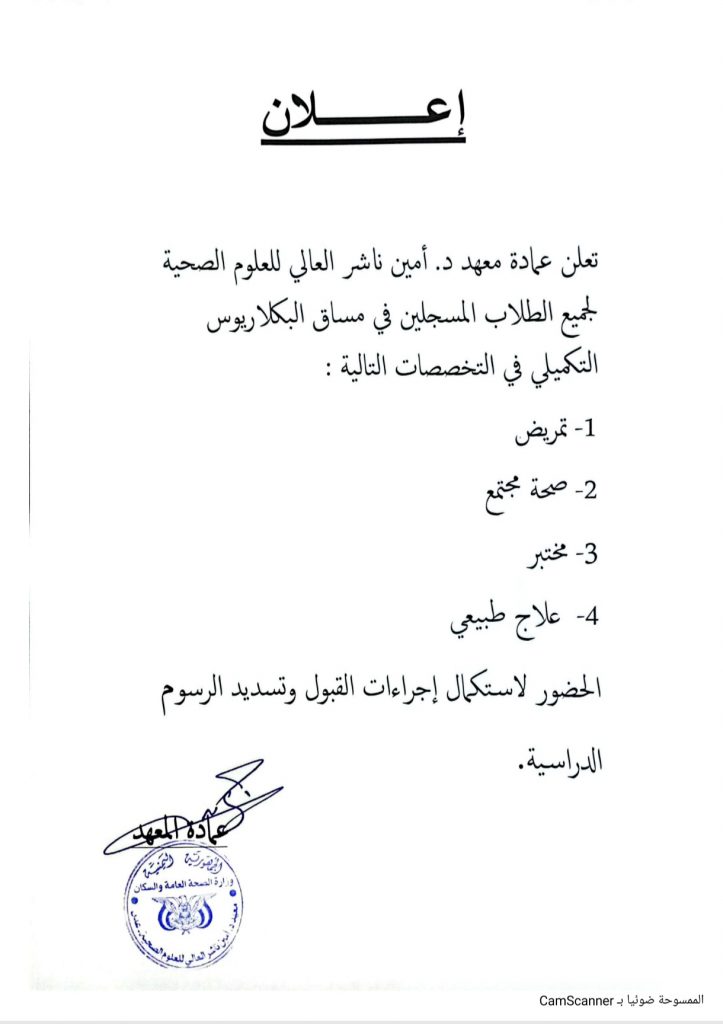 إعـــــــــلان
تعلن عمادة معهد د. أمين ناشر العالي للعلوم الصحية
لجميع الطلاب المسجلين في مساق البكلاريوس
التكميلي في التخصصات التالية :
1- تمريض
2- صحة مجتمع
3- مختبر
4- علاج طبيعي
الحضور لاستكمال إجراءات القبول وتسديد الرسوم
الدراسية.
عمادة المعهد
الجمهورية اليمنية
وزارة الصحة العامة والسكان
معهد د. امين ناشر العالي للعلوم الصحية - عدن
الممسوحة ضوئيا بـ CamScanner